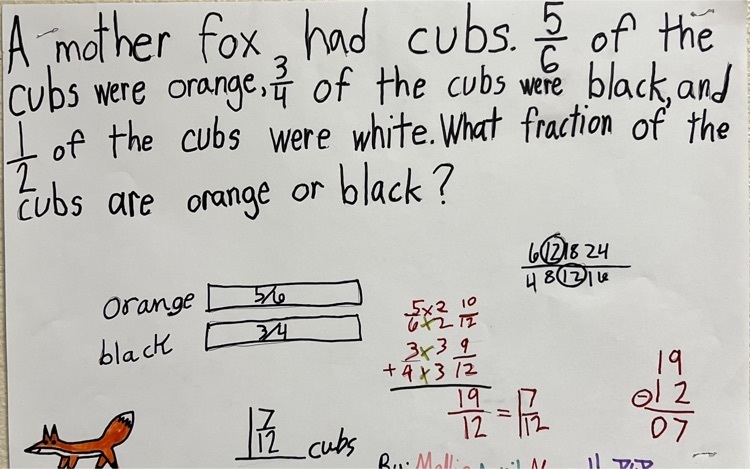 A mother fox had cubs. 5/6 of the
cubs were orange, 3/4 of the cubs were black, and
1/2 of the cubs were white. What fraction of the
cubs are orange or black?
6 12 18 24
4 8 12 16
orange 5/6
black 3/4
5x2 10
6x2 12
3x3 9
+ 4x3 12
19/12 = 1 7/12
19
-12
07
1 7/12 cubs
By: